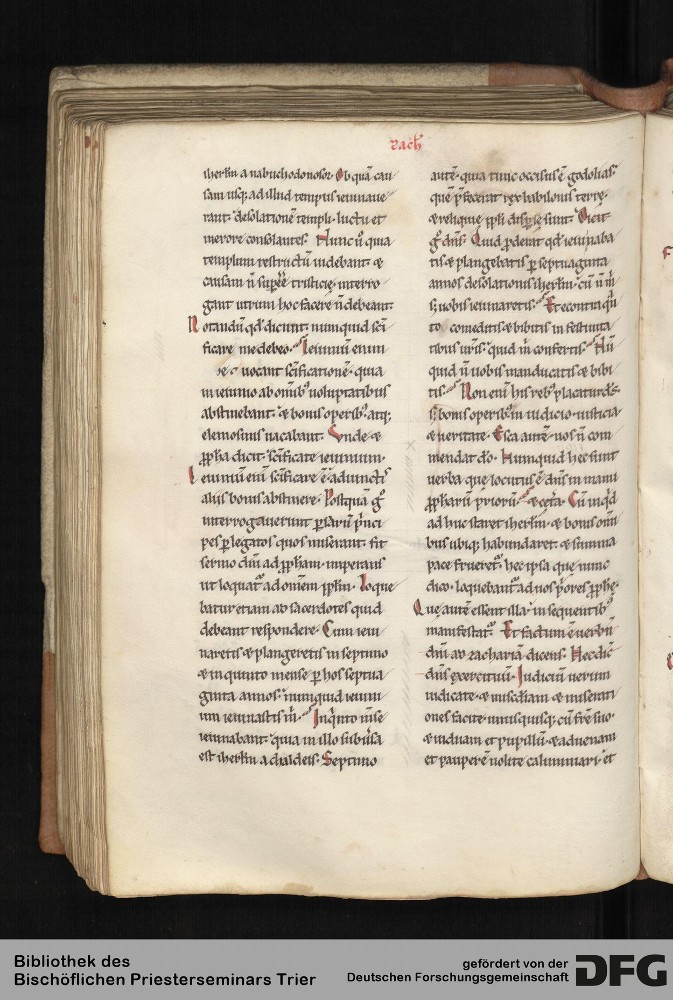 zach
iherlm a nabuchodonosor. Ob quā cau
sam usq; ad illud tempus ieiunaue
rant. desolationē templi. luctu et
merore consolantes. Nunc ū quia
templum restructū uidebant. &
causam n̄ supeē tristicię. interro
gant utrum hoc facere n̄ debeant.
Notandū qđ dicunt. numquid scī
ficare me debeo. Ieiunium enim
uocant scīficationē. quia
in ieiunio ab omīb; uoluptatibus
abstinebant. & bonis operib; atq;
elemosinis uacabant. Unde &
ꝓpha dicit. scīficate ieiunium.
Ieiunium enī scīficare ē. adiunctis
aliis bonis abstinere. Postquā g̊
interrogauerunt persarū prīnci
pes ꝑ legatos quos miserant. fit
sermo dnī ad ꝓpham. imperans
ut loquat̄ ad omēm ppłm. Loque
batur etiam ad sacerdotes quid
debeant respondere. Cum ieiu
naretis & plangeretis in septimo
& in quinto mense ꝑ hos septua
ginta annos. numquid ieiuni
um ieiunastis m̄. In qīnto mīse
ieiunabant. quia in illo subūsa
est iherlm a chaldeis. Septimo
autē. quia tunc occisus ē godolias.
quē p̄fecerat rex babilonis terrę.
& reliquię ppłi dispersę sunt. Dicit
g̊ dn̄s. Quid ꝓdeinit qđ ieiunaba
tis & plangebatis ꝑ septuaginta
annos desolationis iherlm. cū n̄ m̄
s; uobis ieiunaretis. Et econtra qn̄
to comeditis & bibitis in festiuita
tibus urīs. quid m̄ confertis. Nū
quid n̄ uobis manducatis & bibi
tis. Non enī his reb; placatur dś.
s; bonis operib; in iudicio iusticia
& ueritate. Esca autē nos n̄ com
mendat dō. Numquid hec sunt
uerba que locutus ē dn̄s in manu
ꝓpharū p̄riorū. & cetā. Cū inqđ
adhuc staret iherlm. & bonis omī
bus ubiq; habundaret. & summa
pace frueret̄. hec ipsa que nunc
dico. loquebant̄ ad uos p̄ores ꝓphę.
Quę autē essent illa. in sequentib;
manifestat̄. Et factum ē uerbū
dnī ad zachariā dicens. Hec dic̄
dn̄s exercituū. Iudicium uerum
iudicate. & misc̄diam & miserati
ones facite unusquisq; cū frē suo.
& uiduam et pupillū & aduenam
et pauperē nolite calumniari. et
Bibliothek des
Bischöflichen Priesterseminars Trier
gefördert von der
Deutschen Forschungsgemeinschaft
DFG